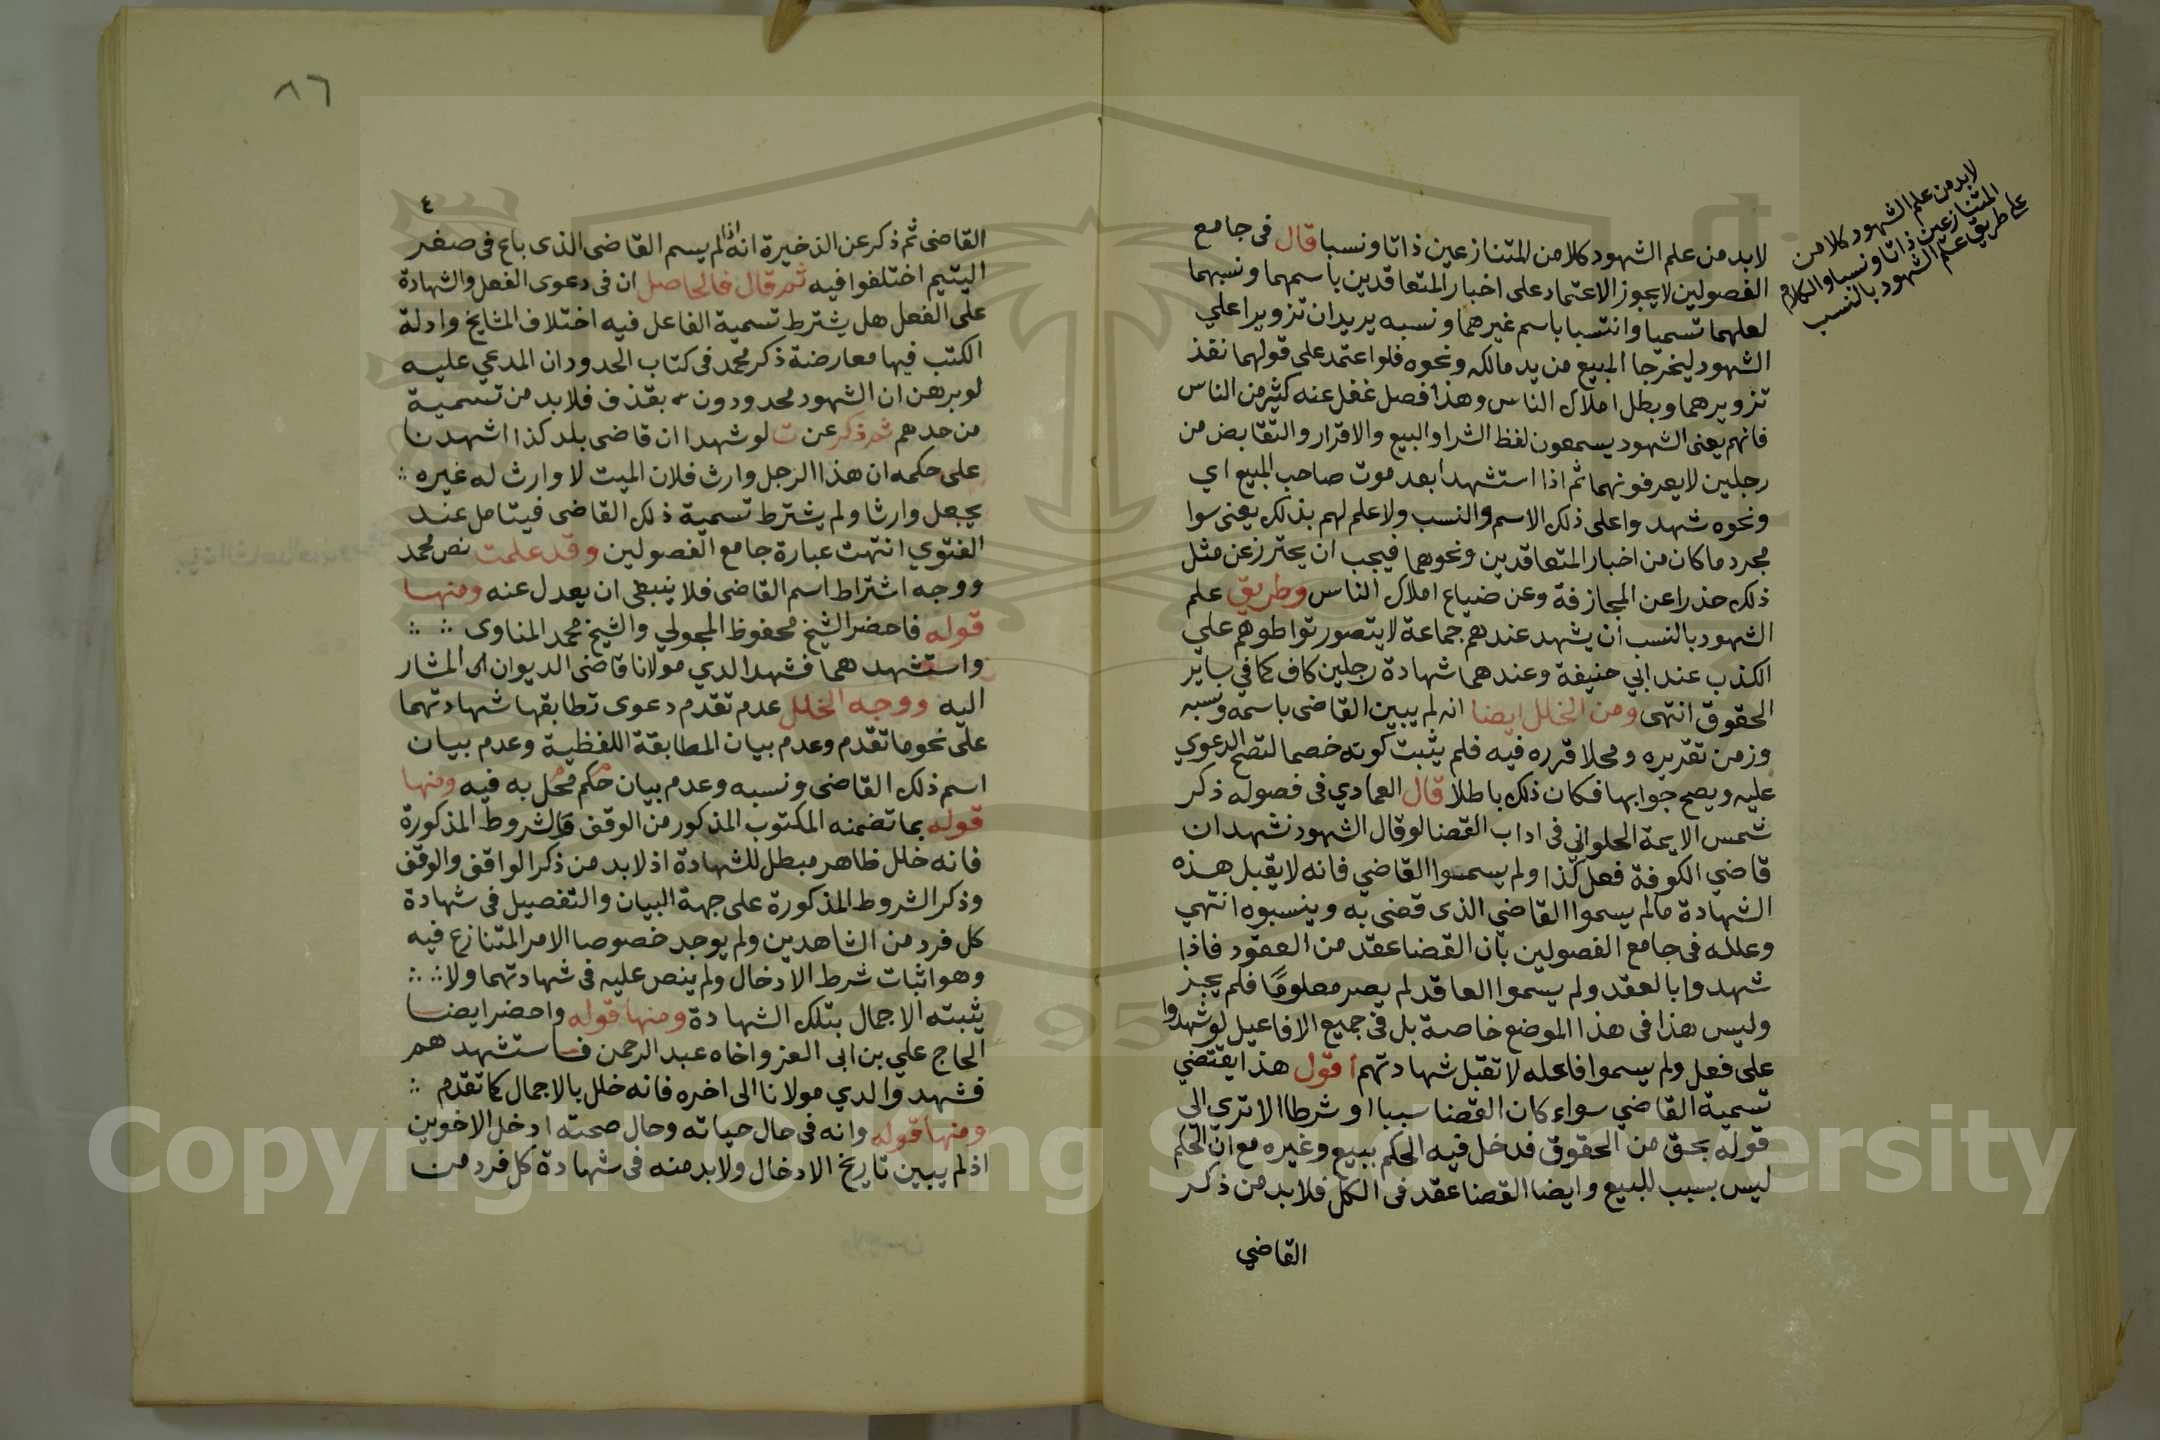 لابد من علم الشهود كلا من
المتنازعين ذاتا ونسبا والكلام
على طريق علم الشهود بالنسب
لابد من علم الشهود كلا من المتنازعين ذاتا ونسبا قال في جامع
الفصولين لا يجوز الاعتماد على اخبار المتعاقدين باسمهما ونسبهما
لعلهما تسميا وانتسبا باسم غيرهما ونسبه يريدان تزويرا علي
الشهود ليخرجا المبيع من يد مالكه ونحوه فلو اعتمد على قولهما نفذ
تزويرهما وبطل املاك الناس وهذا فصل غفل عنه كثير من الناس
فانهم يعنى الشهود يسمعون لفظ الشرا والبيع والاقرار والتقابض من
رجلين لا يعرفونهما ثم اذا استشهدا بعد موت صاحب المبيع اي
ونحوه شهدوا على ذلك الاسم والنسب ولا علم لهم بذلك يعنى سوا
مجرد ما كان من اخبار المتعاقدين ونحوهما فيجب ان يحترز عن مثل
ذلك حذرا عن المجازفة وعن ضياع املاك الناس وطريق علم
الشهود بالنسب ان يشهد عندهم جماعة لا يتصور تواطوهم علي
الكذب عند ابي حنيفة وعندهما شهادة رجلين كاف كما في ساير
الحقوق انتهى ومن الخلل ايضا انه لم يبين القاضى باسمه ونسبه
وزمن تقريره ومحلا قرره فيه فلم يثبت كونه خصما لتصح الدعوي
عليه ويصح جوابها فكان ذلك باطلا قال العمادي في فصوله ذكر
شمس الايمة الحلواني في اداب القضا لو قال الشهود نشهد ان
قاضي الكوفة فعل كذا ولم يسموا القاضي فانه لا يقبل هذه
الشهادة مالم يسموا القاضي الذى قضى به وينسبوه انتهي
وعلله في جامع الفصولين بان القضا عقد من العقود فاذا
شهدوا بالعقد ولم يسموا العاقد لم يصر معلومًا فلم يجز
وليس هذا في هذا الموضع خاصة بل في جميع الافاعيل لو شهدوا
على فعل ولم يسموا فاعله لا تقبل شهادتهم اقول هذا يقتضي
تسمية القاضي سواء كان القضا سببا او شرطا الا تري الي
قوله بحق من الحقوق فدخل فيه الحكم ببيع وغيره مع ان الحكم
ليس بسبب للبيع وايضا القضا عقد في الكل فلابد من ذكر
القاضي
٨٦
٤
القاضى ثم ذكر عن الذخيرة انه اذا لم يسم القاضى الذى باع في صغر
اليتيم اختلفوا فيه ثم قال فالحاصل ان في دعوى الفعل والشهادة
على الفعل هل يشترط تسمية الفاعل فيه اختلاف المشايخ وادلة
الكتب فيها معارضة ذكر محمد في كتاب الحدود ان المدعي عليه
لو برهن ان الشهود محدودون بقذف فلابد من تسمية
من حدهم ثم ذكر عن ت لو شهدا ان قاضى بلد كذا اشهدنا
على حكمه ان هذا الرجل وارث فلان الميت لا وارث له غيره
يجعل وارثا ولم يشترط تسمية ذلك القاضى فيتامل عند
الفتوي انتهت عبارة جامع الفصولين وقد علمت نص محمد
ووجه اشتراط اسم القاضى فلا ينبغى ان يعدل عنه ومنها
قوله فاحضر الشيخ محفوظ المجولي والشيخ محمد المناوى
واستشهدهما فشهدا لدي مولانا قاضى الديوان المشار
اليه ووجه الخلل عدم تقدم دعوى تطابقها شهادتهما
على نحو ما تقدم وعدم بيان المطابقة اللفظية وعدم بيان
اسم ذلك القاضى ونسبه وعدم بيان حكم محل به فيه ومنها
قوله بما تضمنه المكتوب المذكور من الوقف والشروط المذكورة
فانه خلل ظاهر مبطل للشهادة اذ لابد من ذكر الواقف والوقف
وذكر الشروط المذكورة على جهة البيان والتفصيل في شهادة
كل فرد من الشاهدين ولم يوجد خصوصا الامر المتنازع فيه
وهو اثبات شرط الادخال ولم ينص عليه في شهادتهما ولا
يثبته الاجمال بتلك الشهادة ومنها قوله واحضر ايضا
الحاج علي بن ابى العز واخاه عبد الرحمن فاستشهدهم
فشهدوا لدي مولانا الى اخره فانه خلل بالاجمال كما تقدم
ومنها قوله وانه في حال حياته وحال صحته ادخل الاخوين
اذ لم يبين تاريخ الادخال ولابد منه في شهادة كل فرد من
Copyright © King Saud University
1957